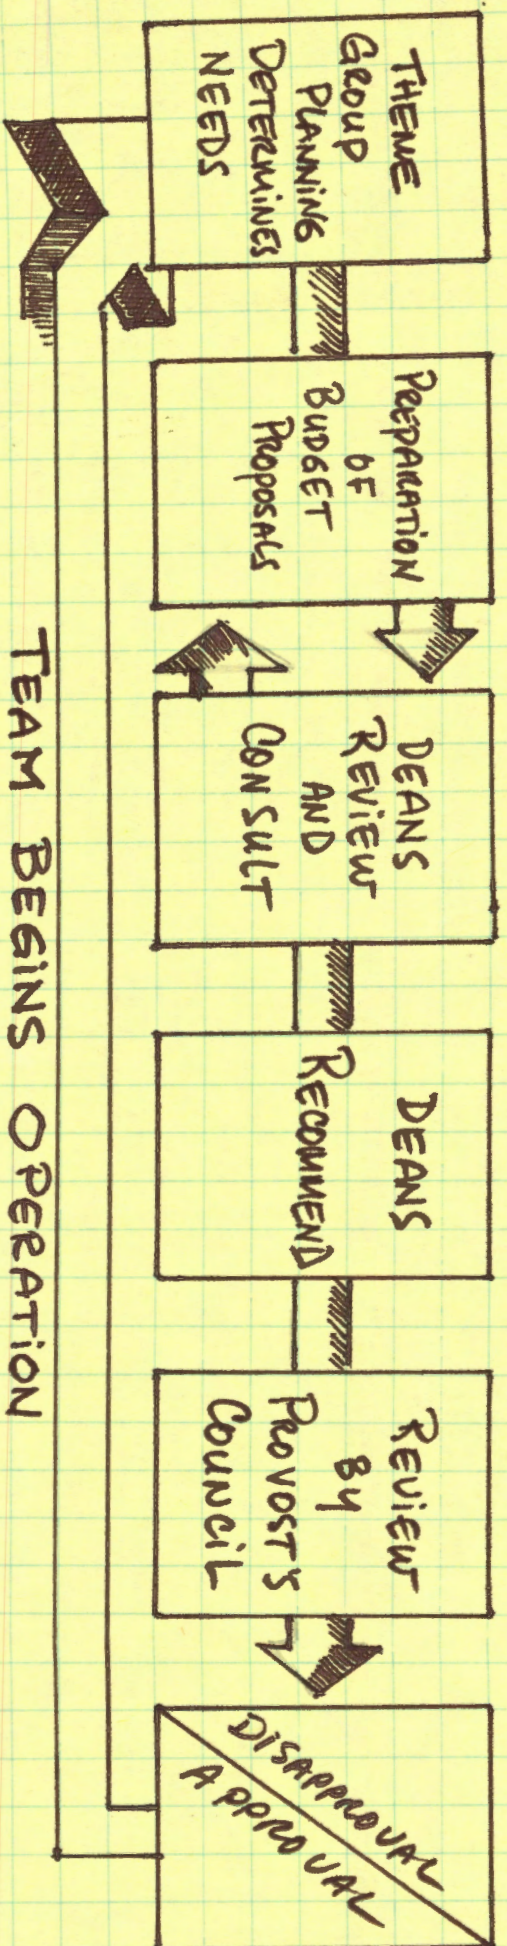 THEME
GROUP
PLANNING
DETERMINES
NEEDS
PREPARATION
OF
BUDGET
PROPOSALS
DEANS
REVIEW
AND
CONSULT
DEANS
RECOMMEND
REVIEW
BY
PROVOST'S
COUNCIL
DISAPPROVAL
APPROVAL
TEAM BEGINS OPERATION